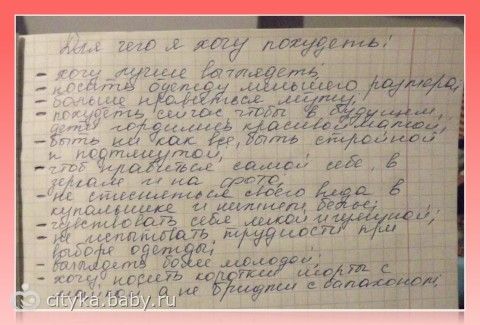 Для чего я хочу похудеть:
- хочу лучше выглядеть;
- носить одежду меньшего размера;
- больше нравиться мужу;
- похудеть сейчас чтобы в будущем,
дети гордились красивой мамой;
- быть не как все, быть стройной
и подтянутой;
- чтоб нравиться самой себе, в
зеркале и на фото;
- не стесняться своего вида в
купальнике и нижнем белье;
- чувствовать себя легкой и
- не испытывать трудности при
выборе одежды;
- выглядеть более молодой;
- хочу носить короткие шорты с
майкой, а не бриджи с балахоном;
cityka.baby.ru